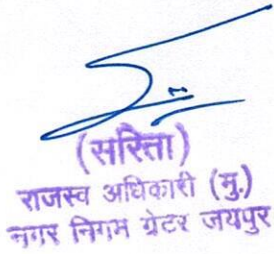 (सरिता)
राजस्व अधिकारी (मु.)
नगर निगम ग्रेटर जयपुर